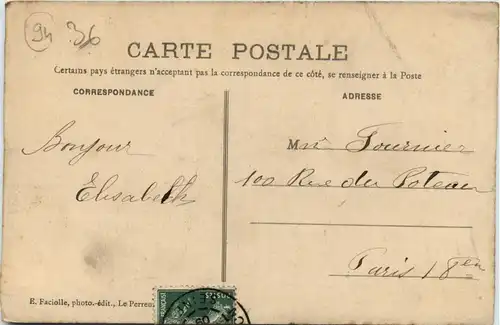 94 36
CARTE POSTALE
Certains pays étrangers n'acceptant pas la correspondance de ce côté, se renseigner à la Poste
CORRESPONDANCE
ADRESSE
Bonjour
Élisabeth
Mr Fournier
100 Rue du Poteau
Paris 18em
E. Faciolle, photo.-édit., Le Perreux